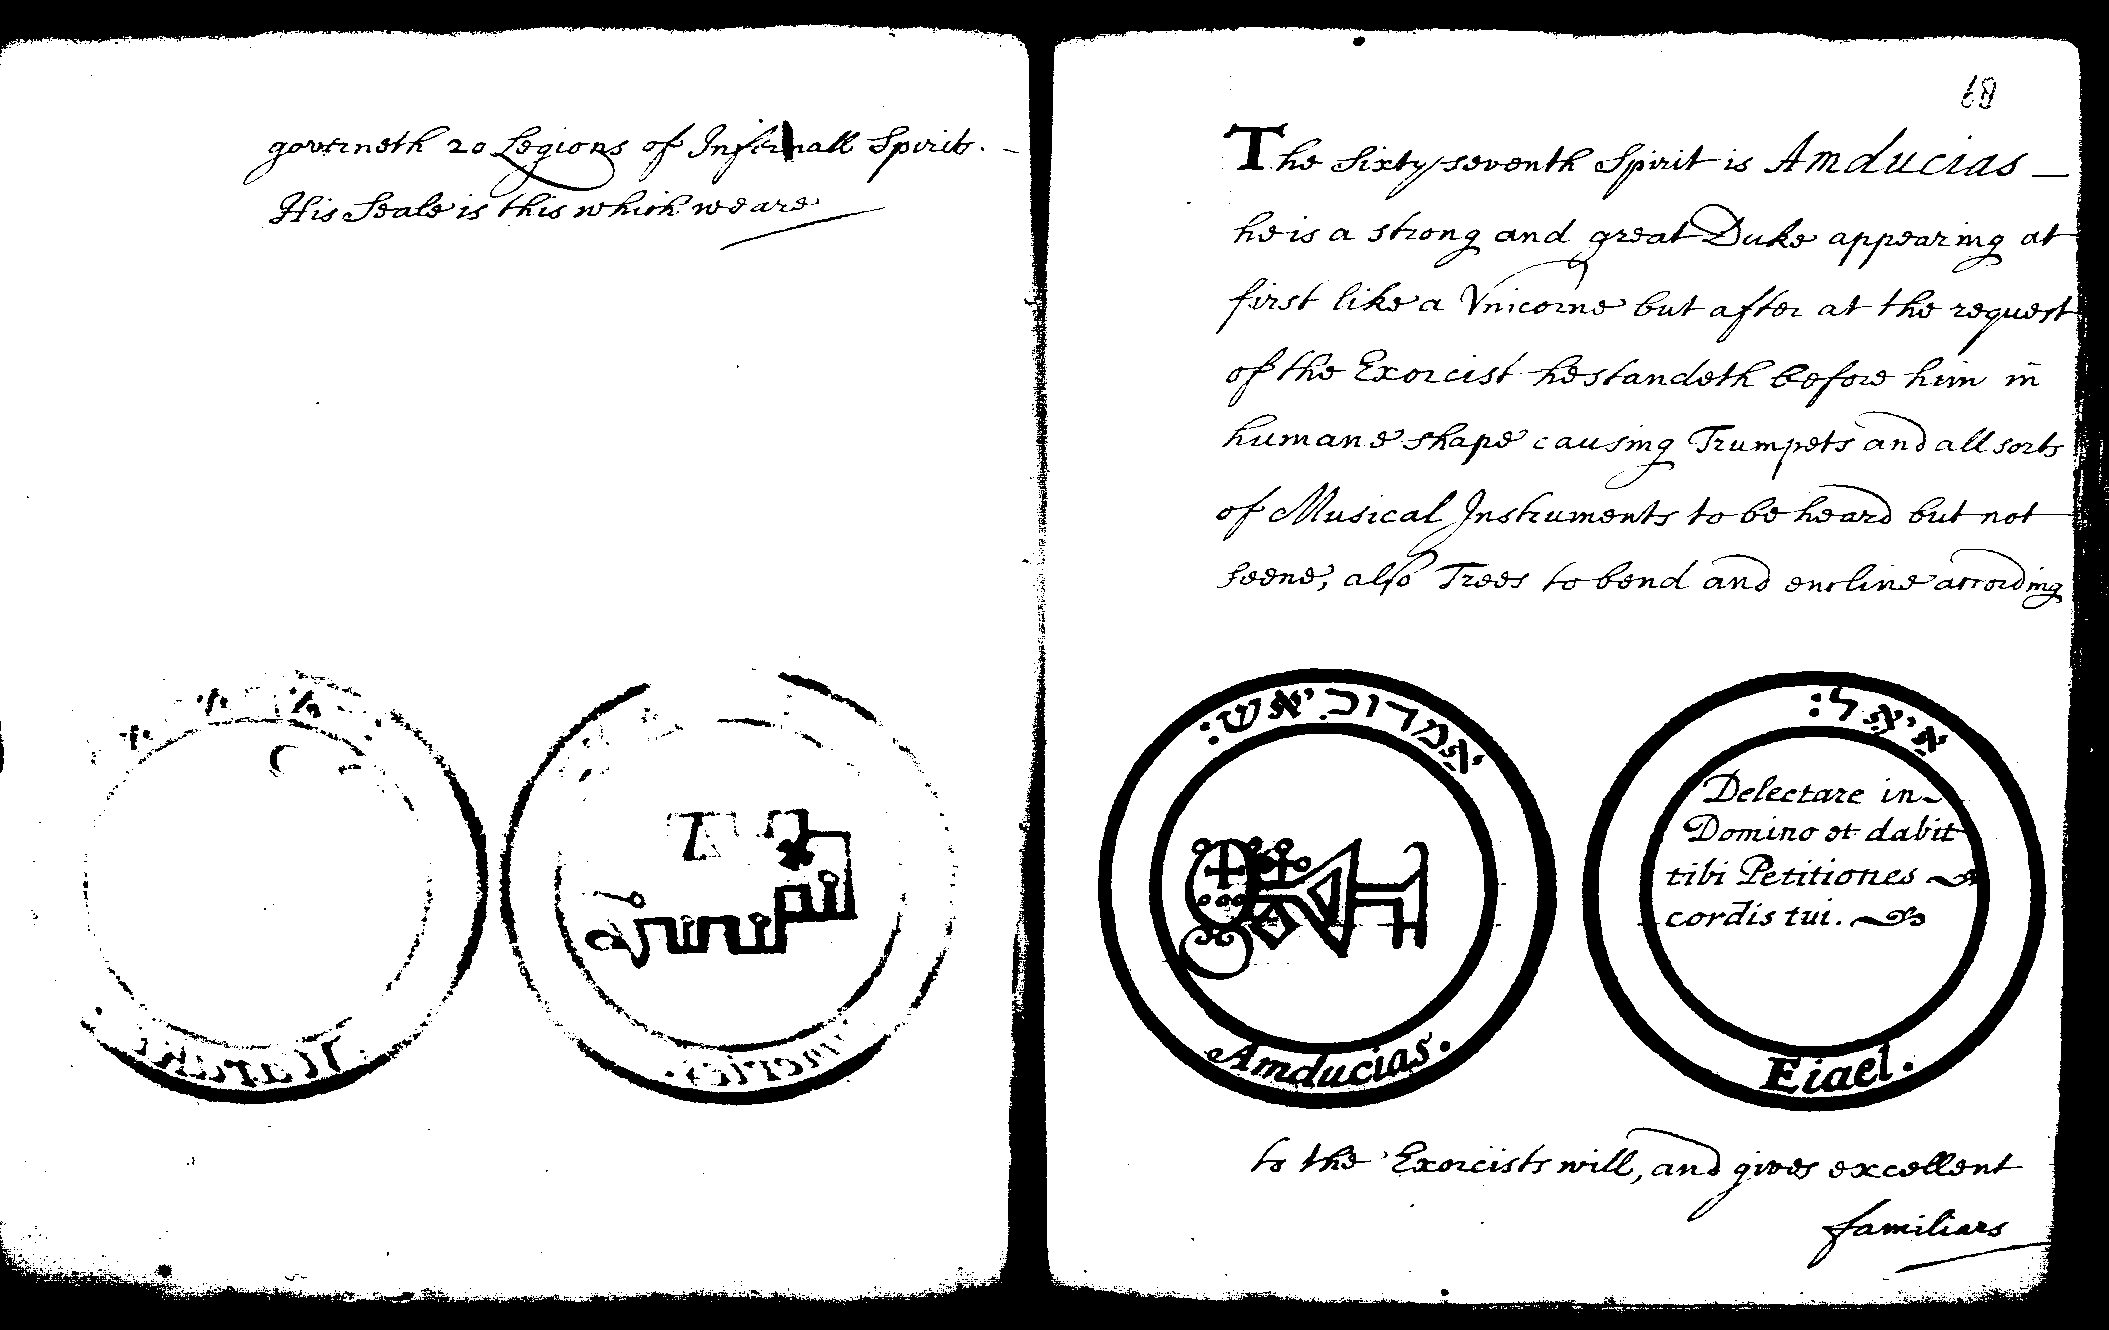 governeth 20 Legions of Infernall Spirits.
His Seale is this which weare
68
The Sixty seventh Spirit is Amducias
he is a strong and great Duke appearing at
first like a Vnicorne but after at the request
of the Exorcist he standeth before him in
humane shape causing Trumpets and all sorts
of Musical Instruments to be heard but not
seene, also Trees to bend and encline according
אמדוכיאש:
Amducias.
איאל:
Delectare in
Domino et dabit
tibi Petitiones
cordis tui.
Eiael.
to the Exorcists will, and gives excellent
familiars